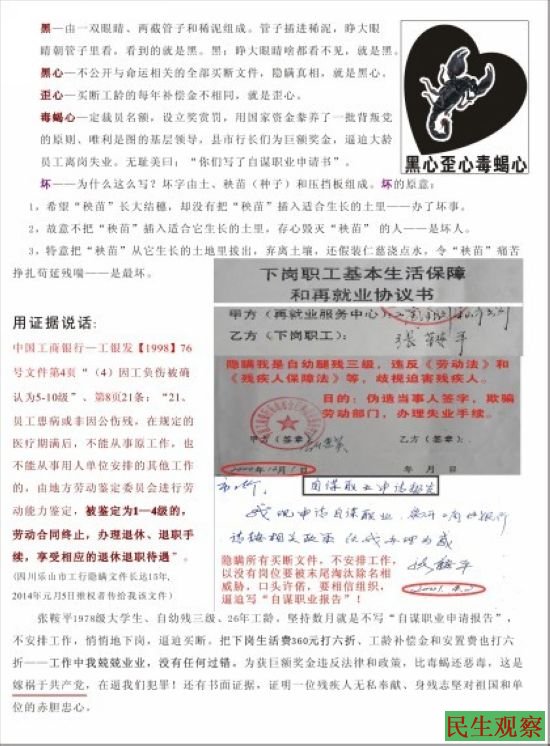 黑—由一双眼睛、两截管子和稀泥组成。管子插进稀泥，睁大眼
睛朝管子里看，看到的就是黑。黑：睁大眼睛啥都看不见，就是黑。
黑心—不公开与命运相关的全部买断文件，隐瞒真相，就是黑心。
歪心—买断工龄的每年补偿金不相同，就是歪心。
毒蝎心—定裁员名额，设立奖赏罚，用国家资金豢养了一批背叛党
的原则、唯利是图的基层领导，县市行长们为巨额奖金，逼迫大龄
员工离岗失业。无耻美曰：“你们写了自谋职业申请书”。
黑心歪心毒蝎心
坏——为什么这么写？坏字由土、秧苗（种子）和压挡板组成。坏的原意：
1，希望“秧苗”长大结穗，却没有把“秧苗”插入适合生长的土里——办了坏事。
2，故意不把“秧苗”插入适合它生长的土里，存心毁灭“秧苗” 的人——是坏人。
3，特意把“秧苗”从它生长的土地里拔出，弃离土壤，还假装仁慈浇点水，令“秧苗”痛苦
挣扎苟延残喘——是最坏。
用证据说话:
中国工商银行—工银发【1998】76
号文件第4页“（4）因工负伤被确
认为5-10级”、第8页21条：“21、
员工患病或非因公伤残，在规定的
医疗期满后，不能从事原工作，也
不能从事用人单位安排的其他工作
的，由地方劳动鉴定委员会进行劳
动能力鉴定，被鉴定为1—4级的，
劳动合同终止，办理退休、退职手
续，享受相应的退休退职待遇”。
(四川乐山市工行隐瞒文件长达15年，
2014年元月5日维权者传给我该文件)
下岗职工基本生活保障
和再就业协议书
甲方（再就业服务中心）：
乙方（下岗职工）：张鞍平
隐瞒我是自幼腿残三级，违反《劳动法》和
《残疾人保障法》等，歧视迫害残疾人。
目的：伪造当事人签字，欺骗
劳动部门，办理失业手续。
甲方（签章）
乙方（签章）：
2000年10月1日
年 月 日
自谋职业申请报告
我现申请自谋职业，离开工商银行
请按相关政策
张鞍平
隐瞒所有买断文件，不安排工作，
以没有岗位要被末尾淘汰除名相
威胁，口头许偌，要相信组织，
逼迫写“自谋职业报告”！
张鞍平1978级大学生、自幼残三级、26年工龄，坚持数月就是不写“自谋职业申请报告”，
不安排工作，悄悄地下岗，逼迫买断。把下岗生活费360元打六折、工龄补偿金和安置费也打六
折——工作中我兢兢业业，没有任何过错，为获巨额奖金违反法律和政策，比毒蝎还恶毒，这是
嫁祸于共产党，在逼我们犯罪！还有书面证据，证明一位残疾人无私奉献、身残志坚对祖国和单
位的赤胆忠心。
民生观察